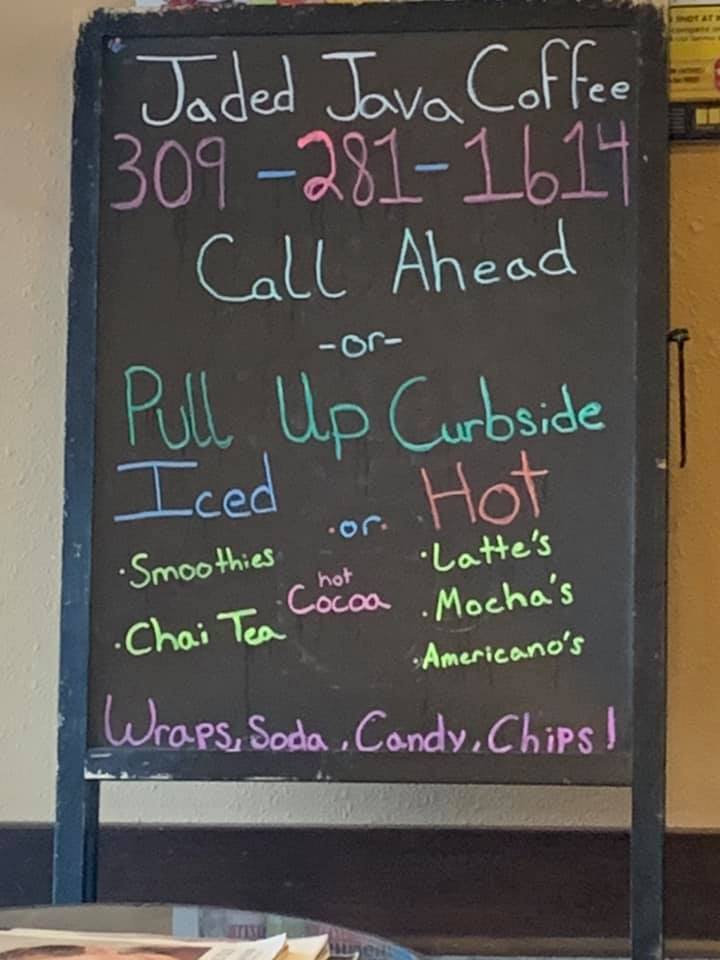 Jaded Java Coffee
309-281-1614
Call Ahead
-or-
Pull Up Curbside
Iced or Hot
·Smoothies
·Chai Tea
hot
Cocoa
·Latte's
·Mocha's
·Americano's
Wraps, Soda, Candy, Chips!